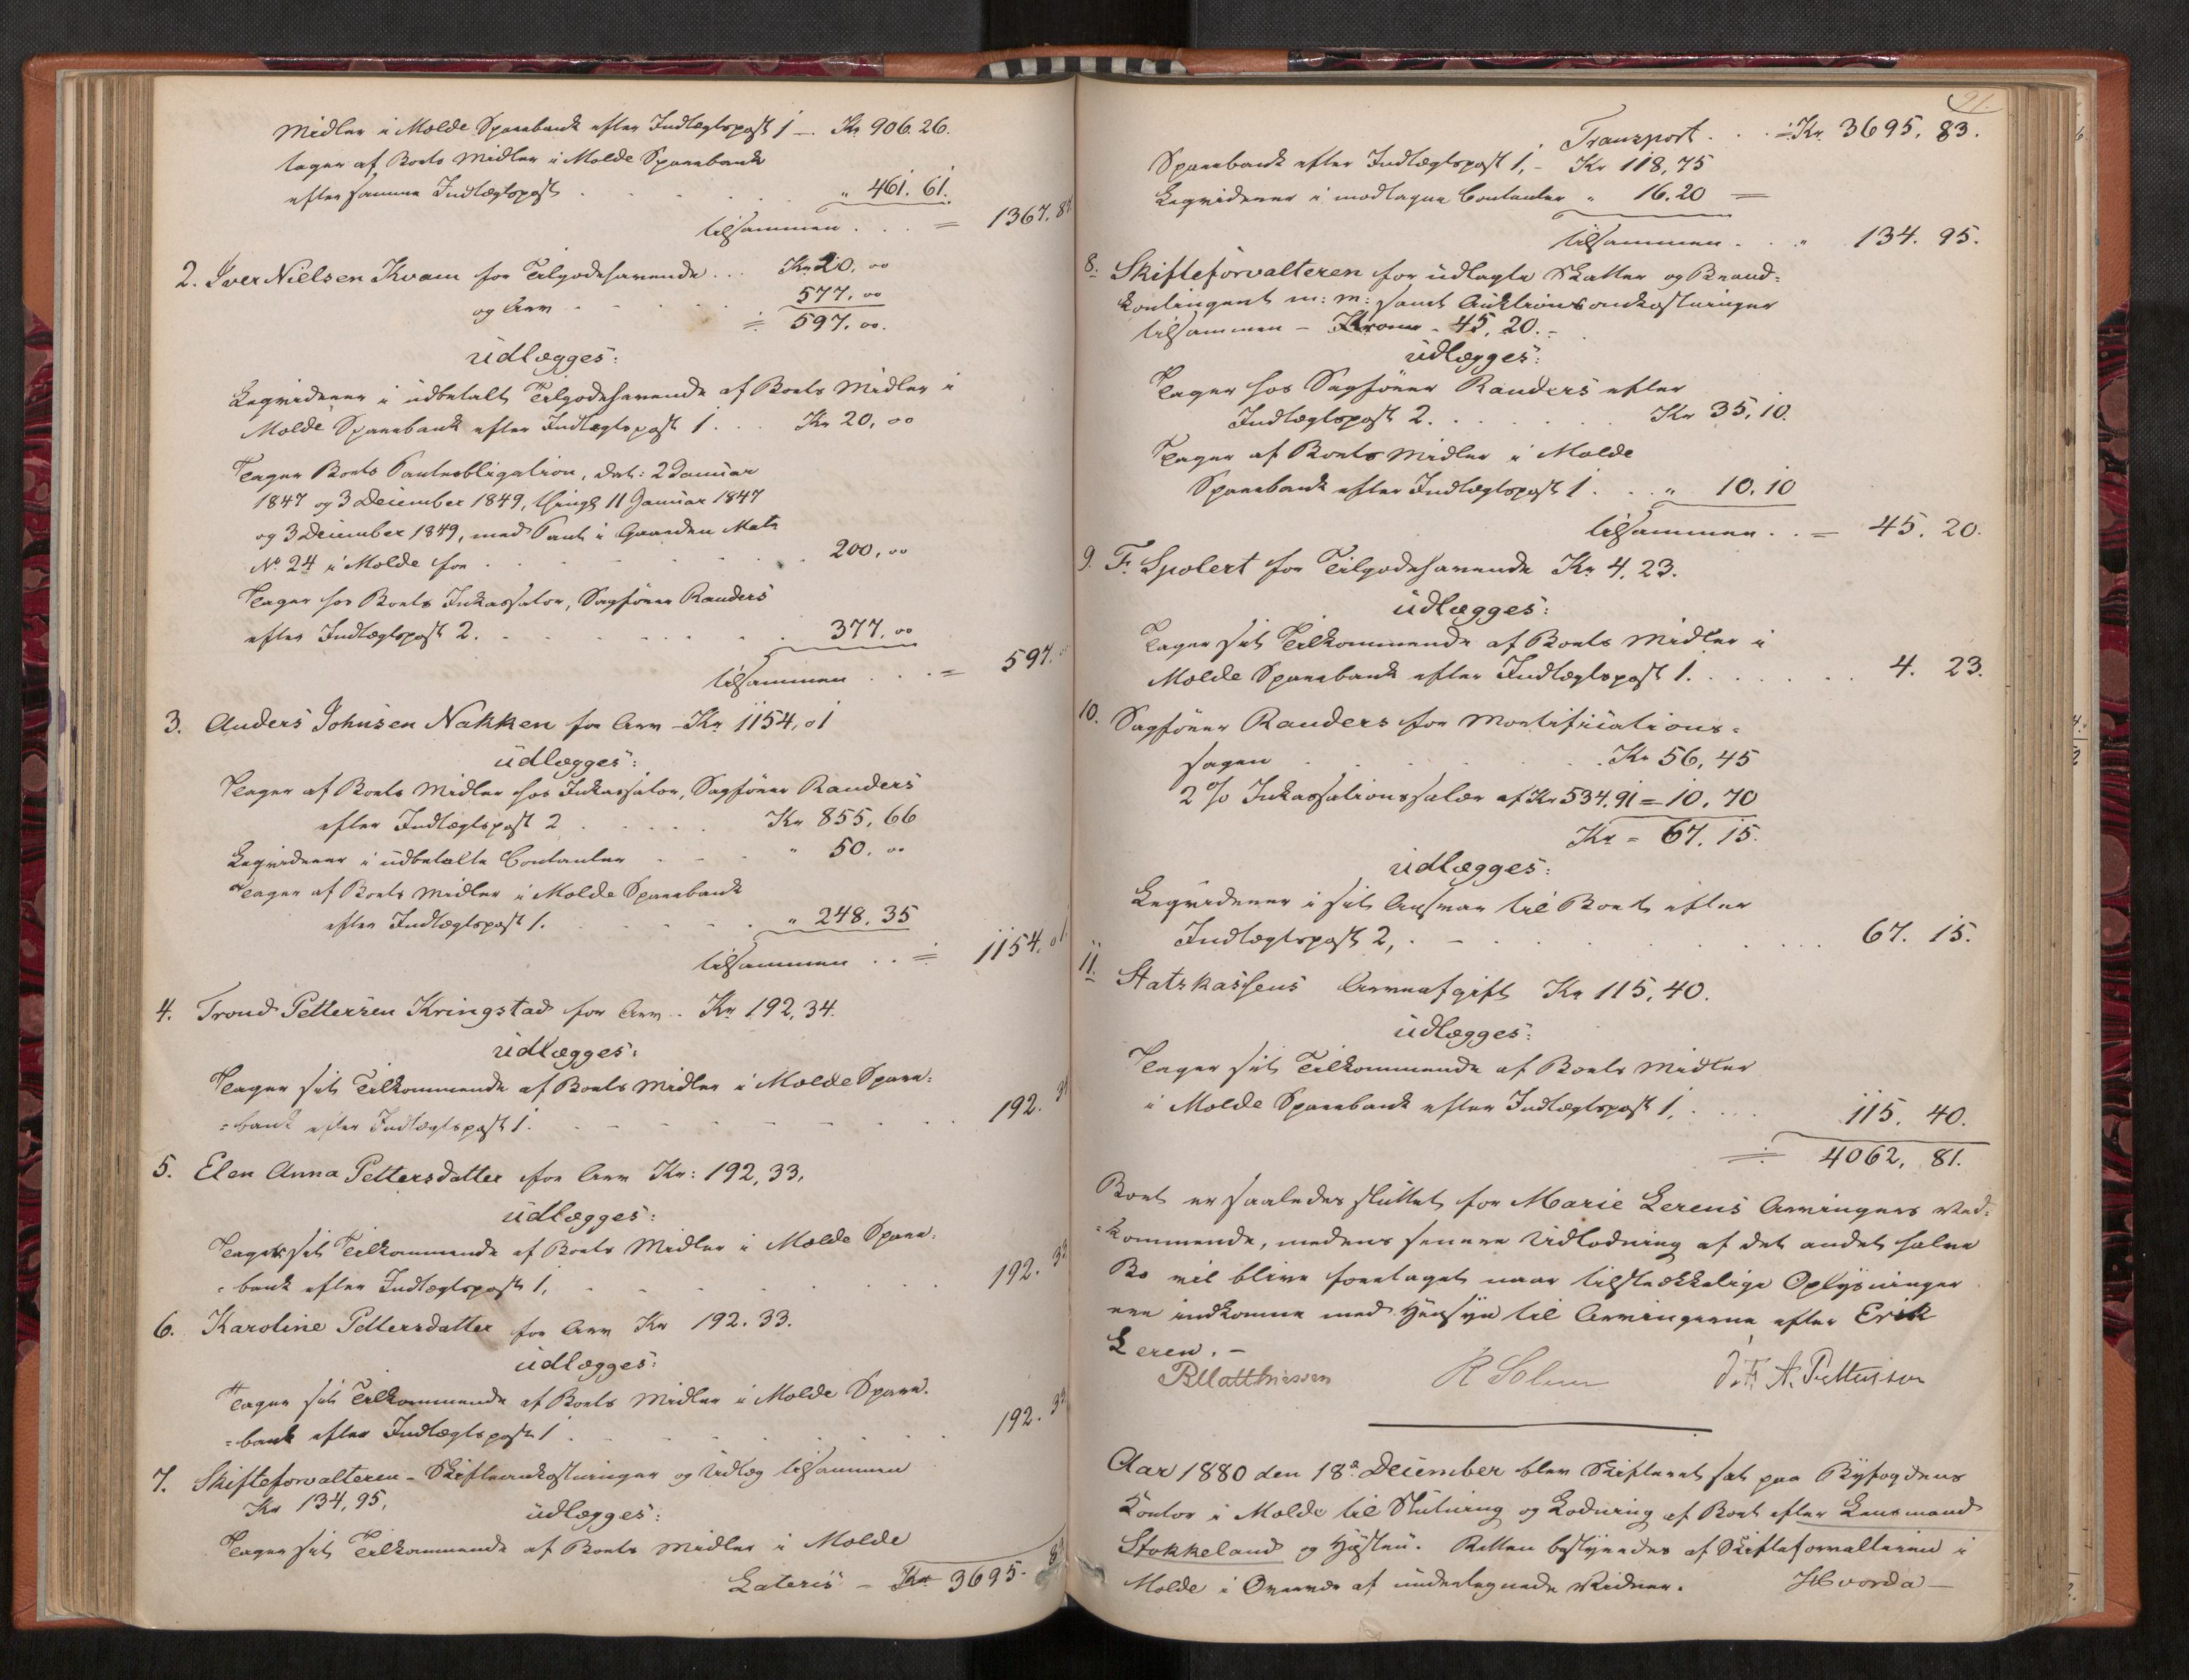 Midler i Molde Sparebank efter Indlægtspost 1 — Kr 906.26.
tager af Boets Midler i Molde Sparebank
efter samme Indlægtspost . . . . . " 461. 61.
tilsammen . . . = 1367. 87
2. Iver Nielsen Kvam for Tilgodehavende . . . Kr 20, 00
og Arv - - - - - 577. 00
÷ 597. 00.
udlægges:
Liqviderer i udbetalt Tilgodehavende af Boets Midler i
Molde Sparebank efter Indlægtspost 1 . . . Kr 20, 00
Tager Boets Panteobligation, dat: 2 Januar
1847 og 3 December 1849, thingl 11 Januar 1847
og 3 December 1849, med Pant i Gaarden Matr
No 24 i Molde for . . . . . . 200, 00
Tager hos Boets Inkassator, Sagfører Randers
efter Indlægtspost 2. . . . . . 377. 00
tilsammen . . . = 597.
3. Anders Johnsen Nakken for Arv - Kr 1154, 01
udlægges:
Tager af Boets Midler hos Inkassator, Sagfører Randers
efter Indlægtspost 2 . . . . Kr 855, 66
Liqviderer i udbetalte Contanter . . . " 50. 00
Tager af Boets Midler i Molde Sparebank
efter Indlægtspost 1. . . . . " 248. 35
tilsammen . . = 1154. 01
4. Trond Pettersen Kringstad for Arv - Kr 192, 34.
udlægges:
Tager sit Tilkommende af Boets Midler i Molde Spare=
=bank efter Indlægtspost 1. . . . . . . 192. 34
5. Elen Anna Pettersdatter for Arv Kr: 192, 33,
udlægges:
Tager sit Tilkommende af Boets Midler i Molde Spare=
=bank efter Indlægtspost 1, . . . . . 192. 33
6. Karoline Pettersdatter for Arv Kr 192. 33.
udlægges:
Tager sit Tilkommende af Boets Midler i Molde Spare=
=bank efter Indlægtspost 1 . . . . . . 192. 33
7. Skifteforvalteren - Skifteomkostninger og Udlæg tilsammen
Kr 134, 95, udlægges:
Tager sit Tilkommende af Boets Midler i Molde
Lateris - Kr 3695. 83
91.
Transport . . . = Kr. 3695, 83.
Sparebank efter Indlægtspost 1, - Kr 118, 75
Liqviderer i modtagne Contanter " 16. 20 =
tilsammen . . " 134. 95.
8. Skifteforvalteren for udlagte Skatter og Brand=
kontingent m: m: samt Auktionsomkostninger
tilsammen - Kroner - 45, 20. -
udlægges:
Tager hos Sagfører Randers efter
Indlægtspost 2. . . . . . Kr 35, 10.
Tager af Boets Midler i Molde
Sparebank efter Indlægtspost 1 . . . " 10. 10
tilsammen . . = 45. 20.
9. F. Spolert for Tilgodehavende Kr 4, 23.
udlægges:
Tager sit Tilkommende af Boets Midler i
Molde Sparebank efter Indlægtspost 1. . . . . . 4. 23.
10. Sagfører Randers for Mortifications=
sagen . . . . . . Kr 56, 45
2 % Inkassationssalær af Kr 534, 91 = 10, 70
Kr = 67, 15.
udlægges:
Liqviderer i sit Ansvar til Boet efter
Indlægtspost 2, . - . . . . . . 67. 15.
11. Statskassens Arveafgift Kr 115, 40.
udlægges:
Tager sit Tilkommende af Boets Midler
i Molde Sparebank efter Indlægtspost 1, . . . 115. 40.
÷ 4062, 81.
Boet er saaledes sluttet for Marie Lerens Arvingers Ved=
=kommende, medens senere Udlodning af det andet halve
Bo vil blive foretaget naar tilstrækkelige Oplysninger
ere indkomne med Hensyn til Arvingerne efter Erik
Leren. -
R Matthiessen R Solem A. Pettersen
Aar 1880 den 18de December blev Skifteret sat paa Byfogdens
Kontor i Molde til Slutning og Lodning af Boet efter Lensmand
Stokkeland og Hustru. Retten bestyredes af Skifteforvalteren i
Molde i Overvær af undertegnede Vidner. Hvorda —